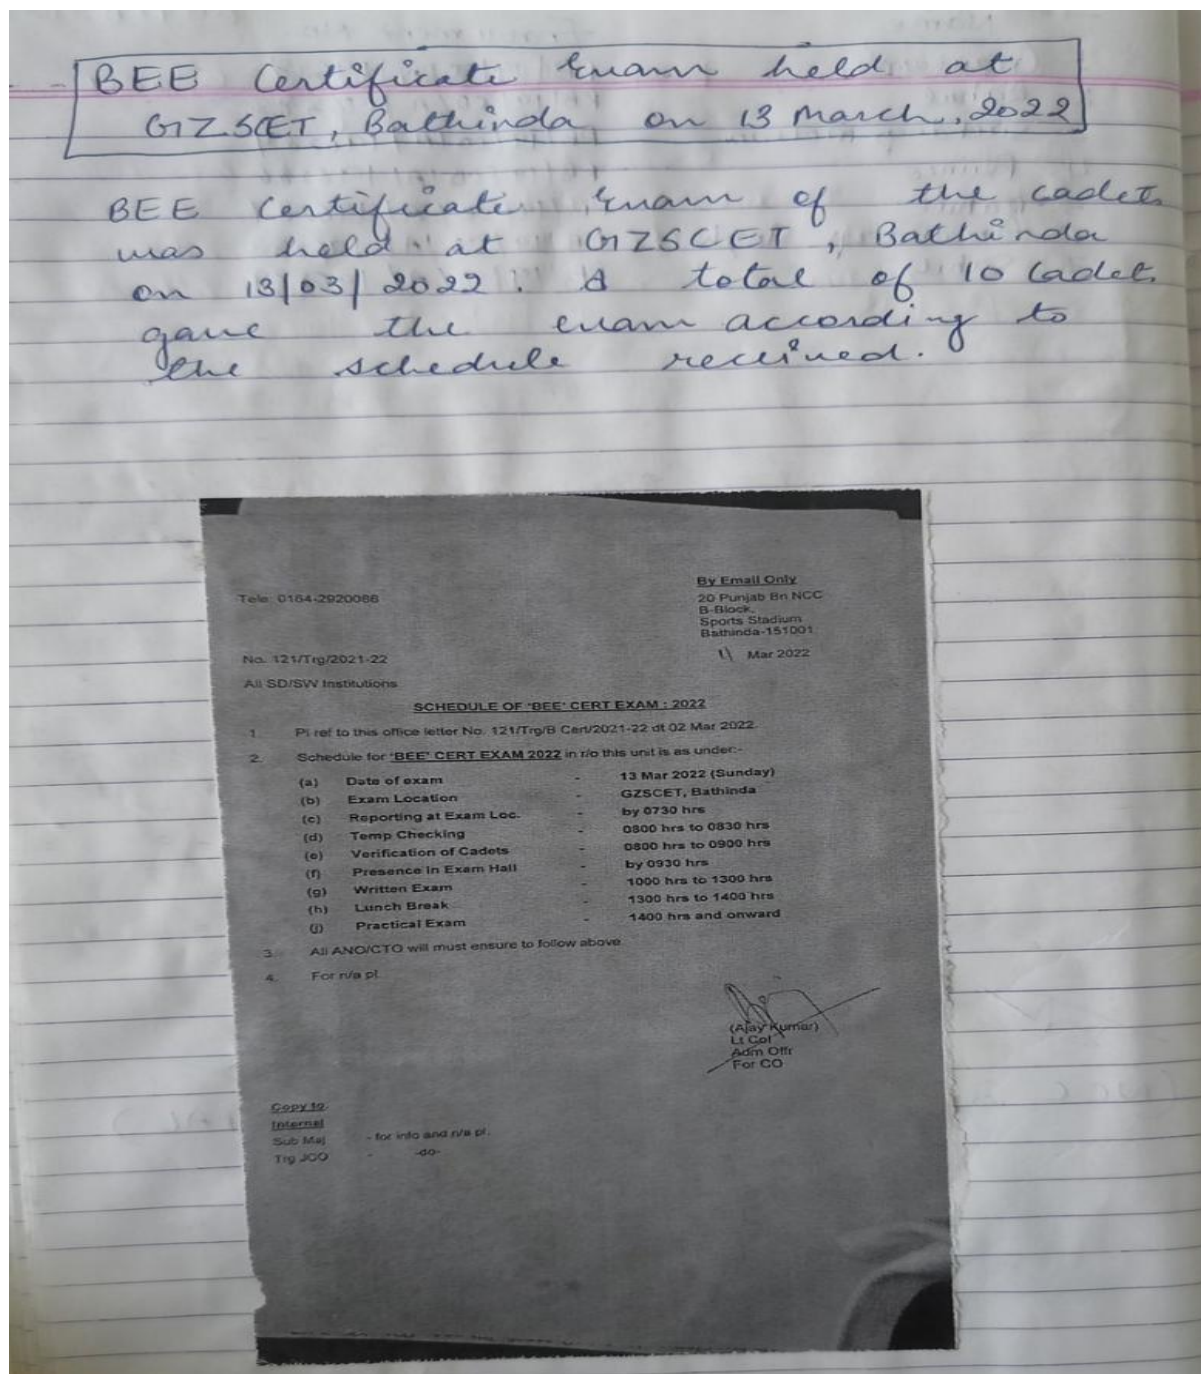 BEE Certificate Exam held at
GZSCET, Bathinda on 13 March, 2022
BEE Certificate Exam of the cadets
was held at GZSCET, Bathinda
on 13/03/2022. A total of 10 Cadets
gave the exam according to
the schedule received.
By Email Only
Tele: 0164-2920066
20 Punjab Bn NCC
B-Block,
Sports Stadium
Bathinda-151001
No. 121/Trg/2021-22
11 Mar 2022
All SD/SW Institutions
SCHEDULE OF 'BEE' CERT EXAM : 2022
1. Pl ref to this office letter No. 121/Trg/B Cert/2021-22 dt 02 Mar 2022.
2. Schedule for 'BEE' CERT EXAM 2022 in r/o this unit is as under:-
(a) Date of exam - 13 Mar 2022 (Sunday)
(b) Exam Location - GZSCET, Bathinda
(c) Reporting at Exam Loc. - by 0730 hrs
(d) Temp Checking - 0800 hrs to 0830 hrs
(e) Verification of Cadets - 0800 hrs to 0900 hrs
(f) Presence in Exam Hall - by 0930 hrs
(g) Written Exam - 1000 hrs to 1300 hrs
(h) Lunch Break - 1300 hrs to 1400 hrs
(j) Practical Exam - 1400 hrs and onward
3. All ANO/CTO will must ensure to follow above.
4. For n/a pl.
(Ajay Kumar)
Lt Col
Adm Offr
For CO
Copy to:
Internal
Sub Maj - for info and n/a pl.
Trg JCO - -do-